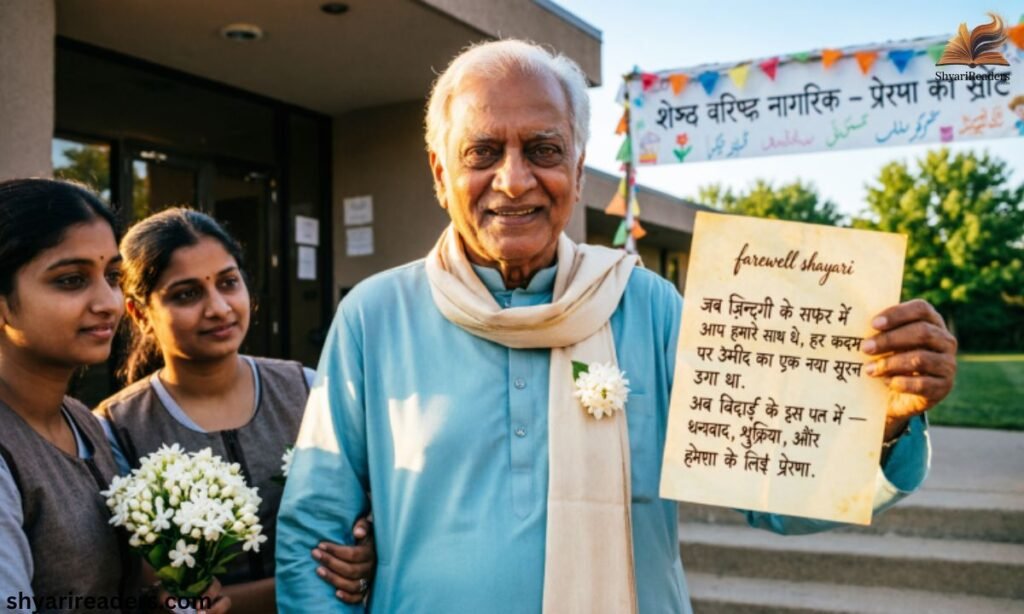 ShyariReaders
शेष्ठ वरिष्ठ नागरिक – प्रेरणा का स्रोट
farewell shayari
जब ज़िन्दगी के सफर में
आप हमारे साथ थे, हर कदम
पर उमीद का एक नया सूरन
उगा था.
अब विदाई के इस पल में —
धन्यवाद, शुक्रिया, और
हमेशा के लिई प्रेरणा.
shyarireaders.com